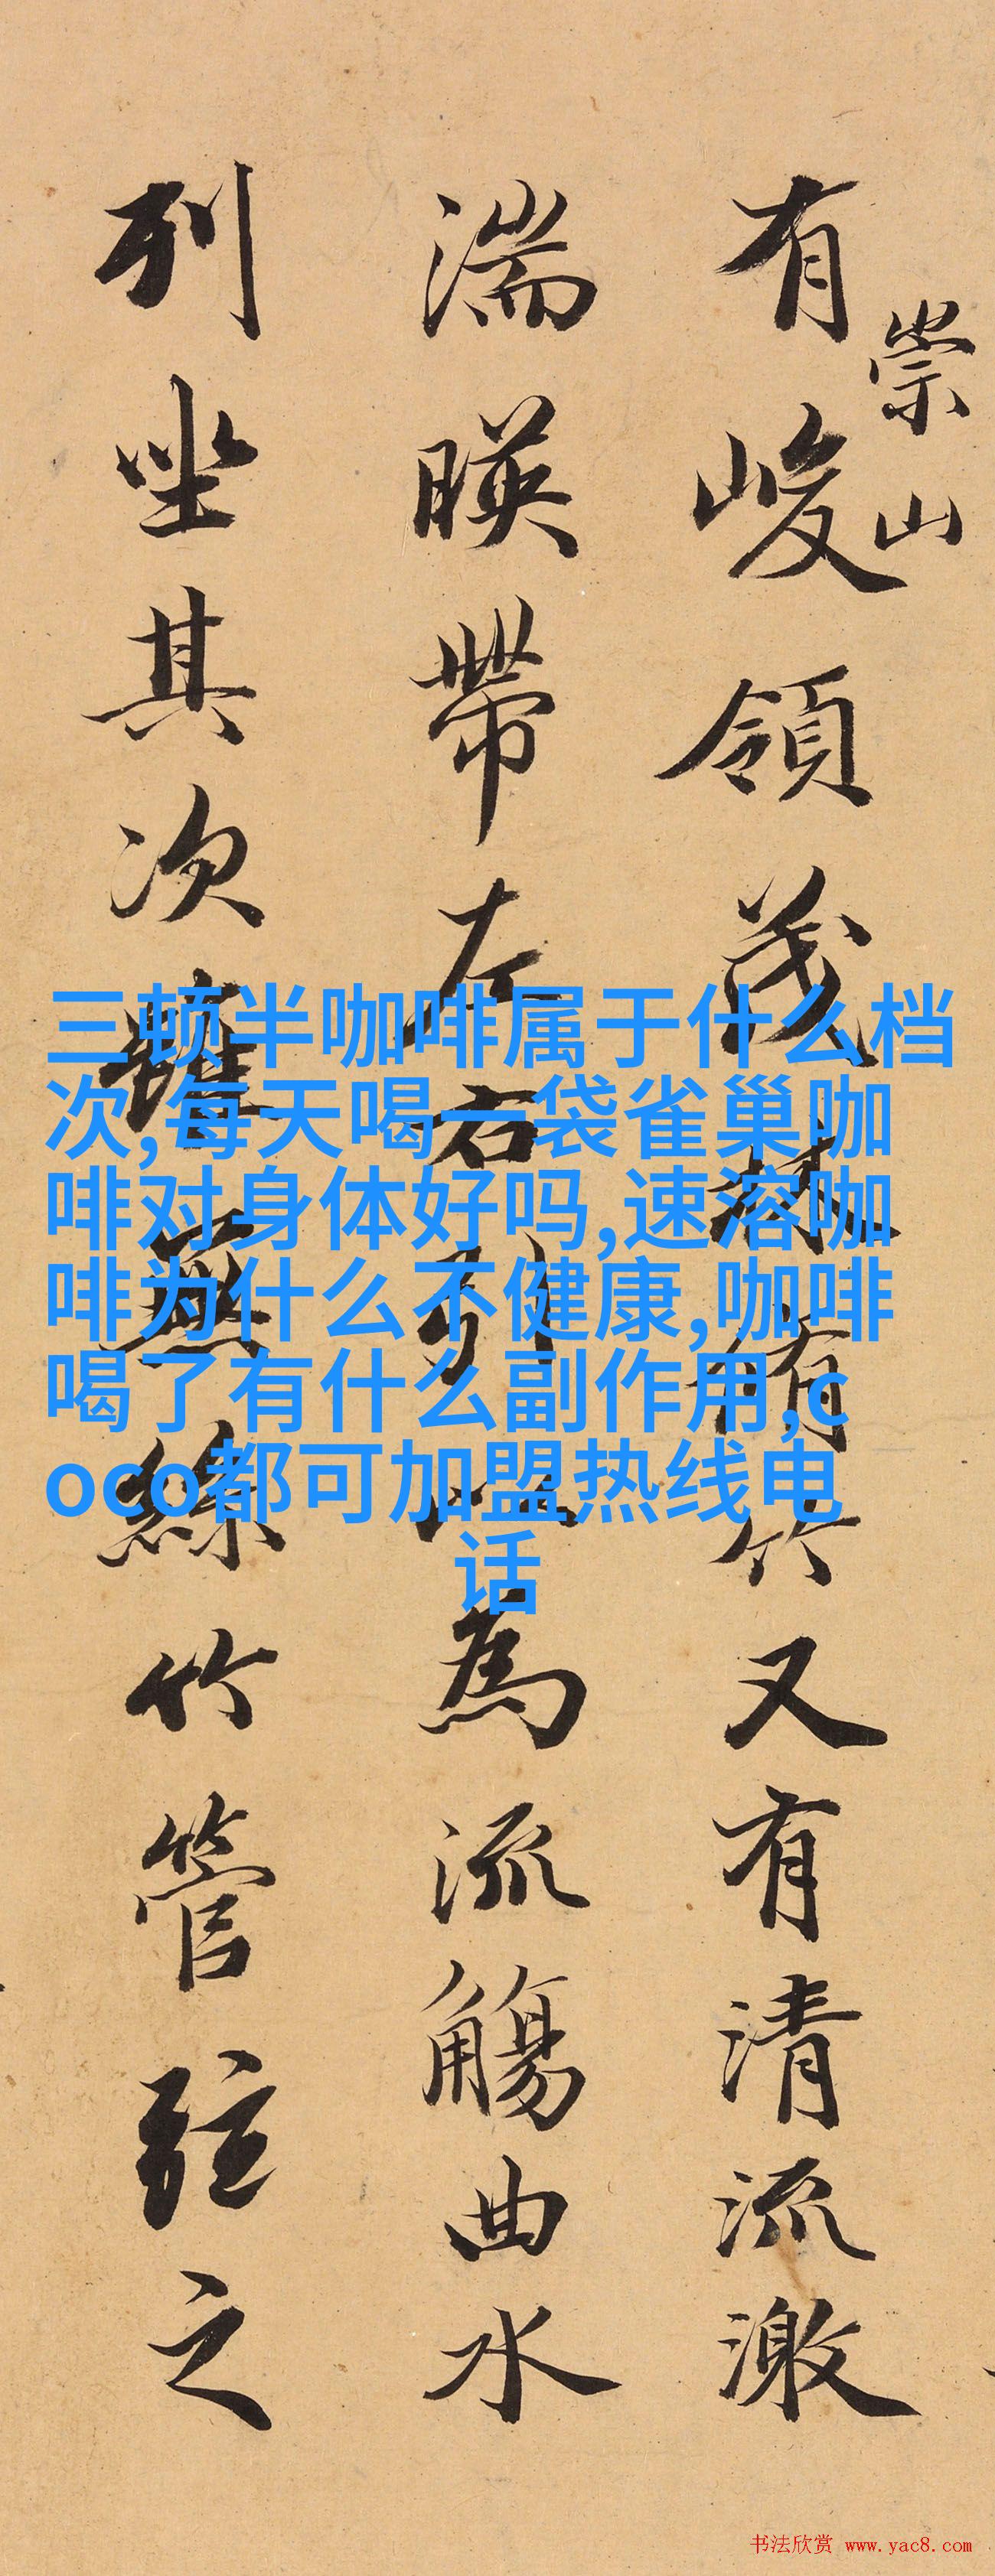 崇山
有峻領茂林脩竹又有清流激
湍暎帶左右引以為流觴曲水
列坐其次雖無絲竹管弦之
三顿半咖啡属于什么档
次,每天喝一袋雀巢咖
啡对身体好吗,速溶咖
啡为什么不健康,咖啡
喝了有什么副作用,c
oco都可加盟热线电
话
书法欣赏 www.yac8.com